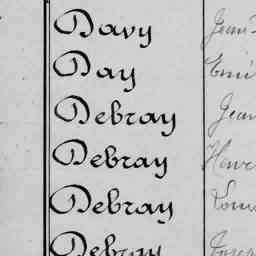 Davy Jean
Day Emi
Debray Jean
Debray Henr
Debray Loui
Debray Josep